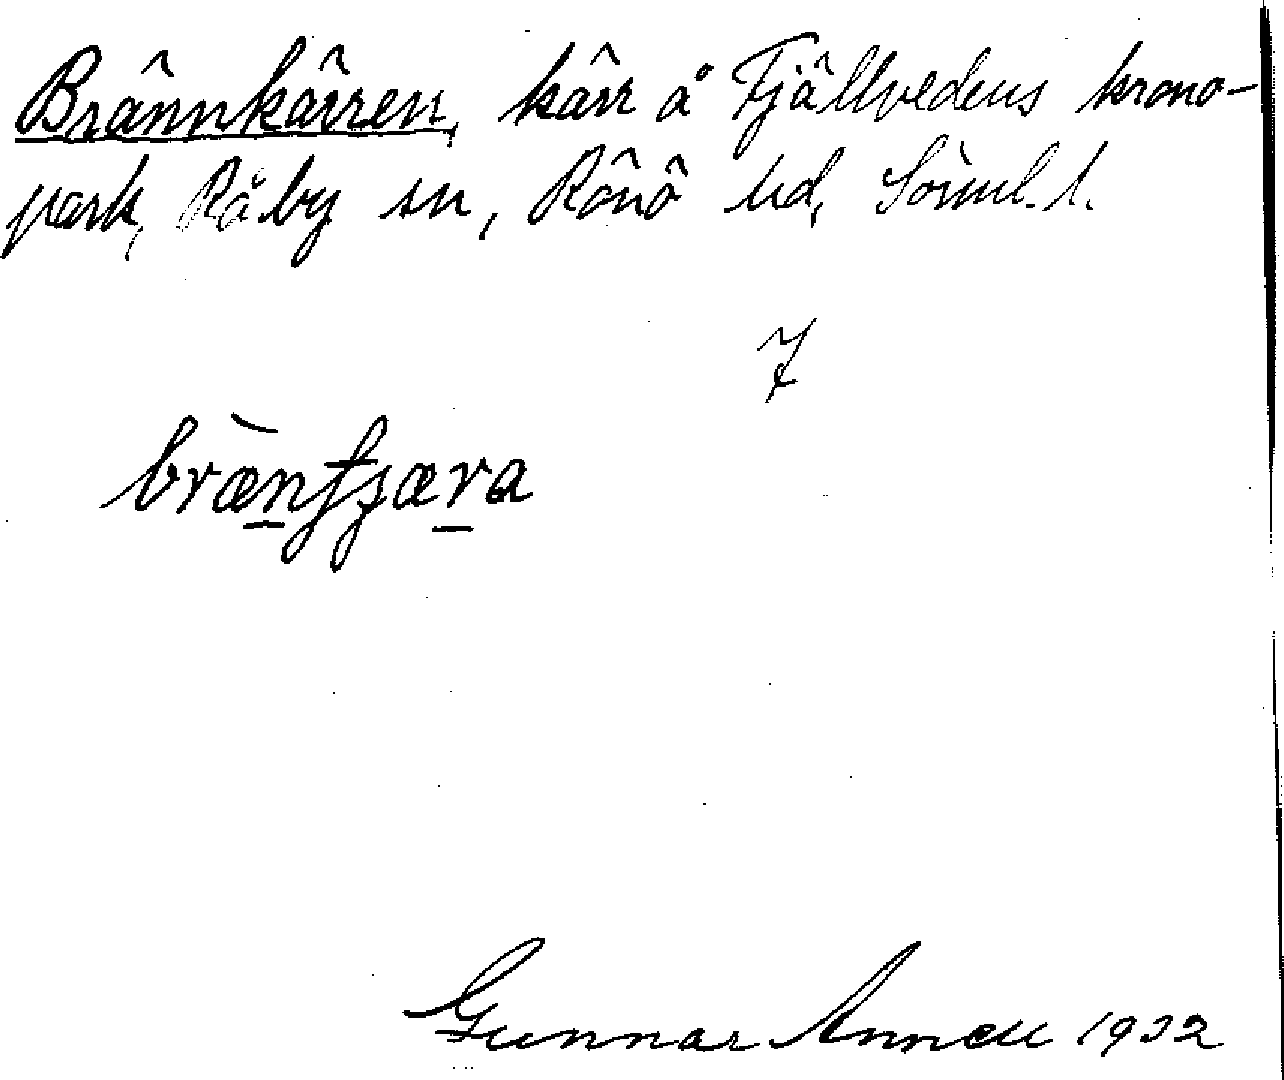 Brännkärren, kärr å Fjällvedens krono-
park, Råby sn, Rönö hd, Sörml. l.
7
brænfʒæra
Gunnar Annell 1932